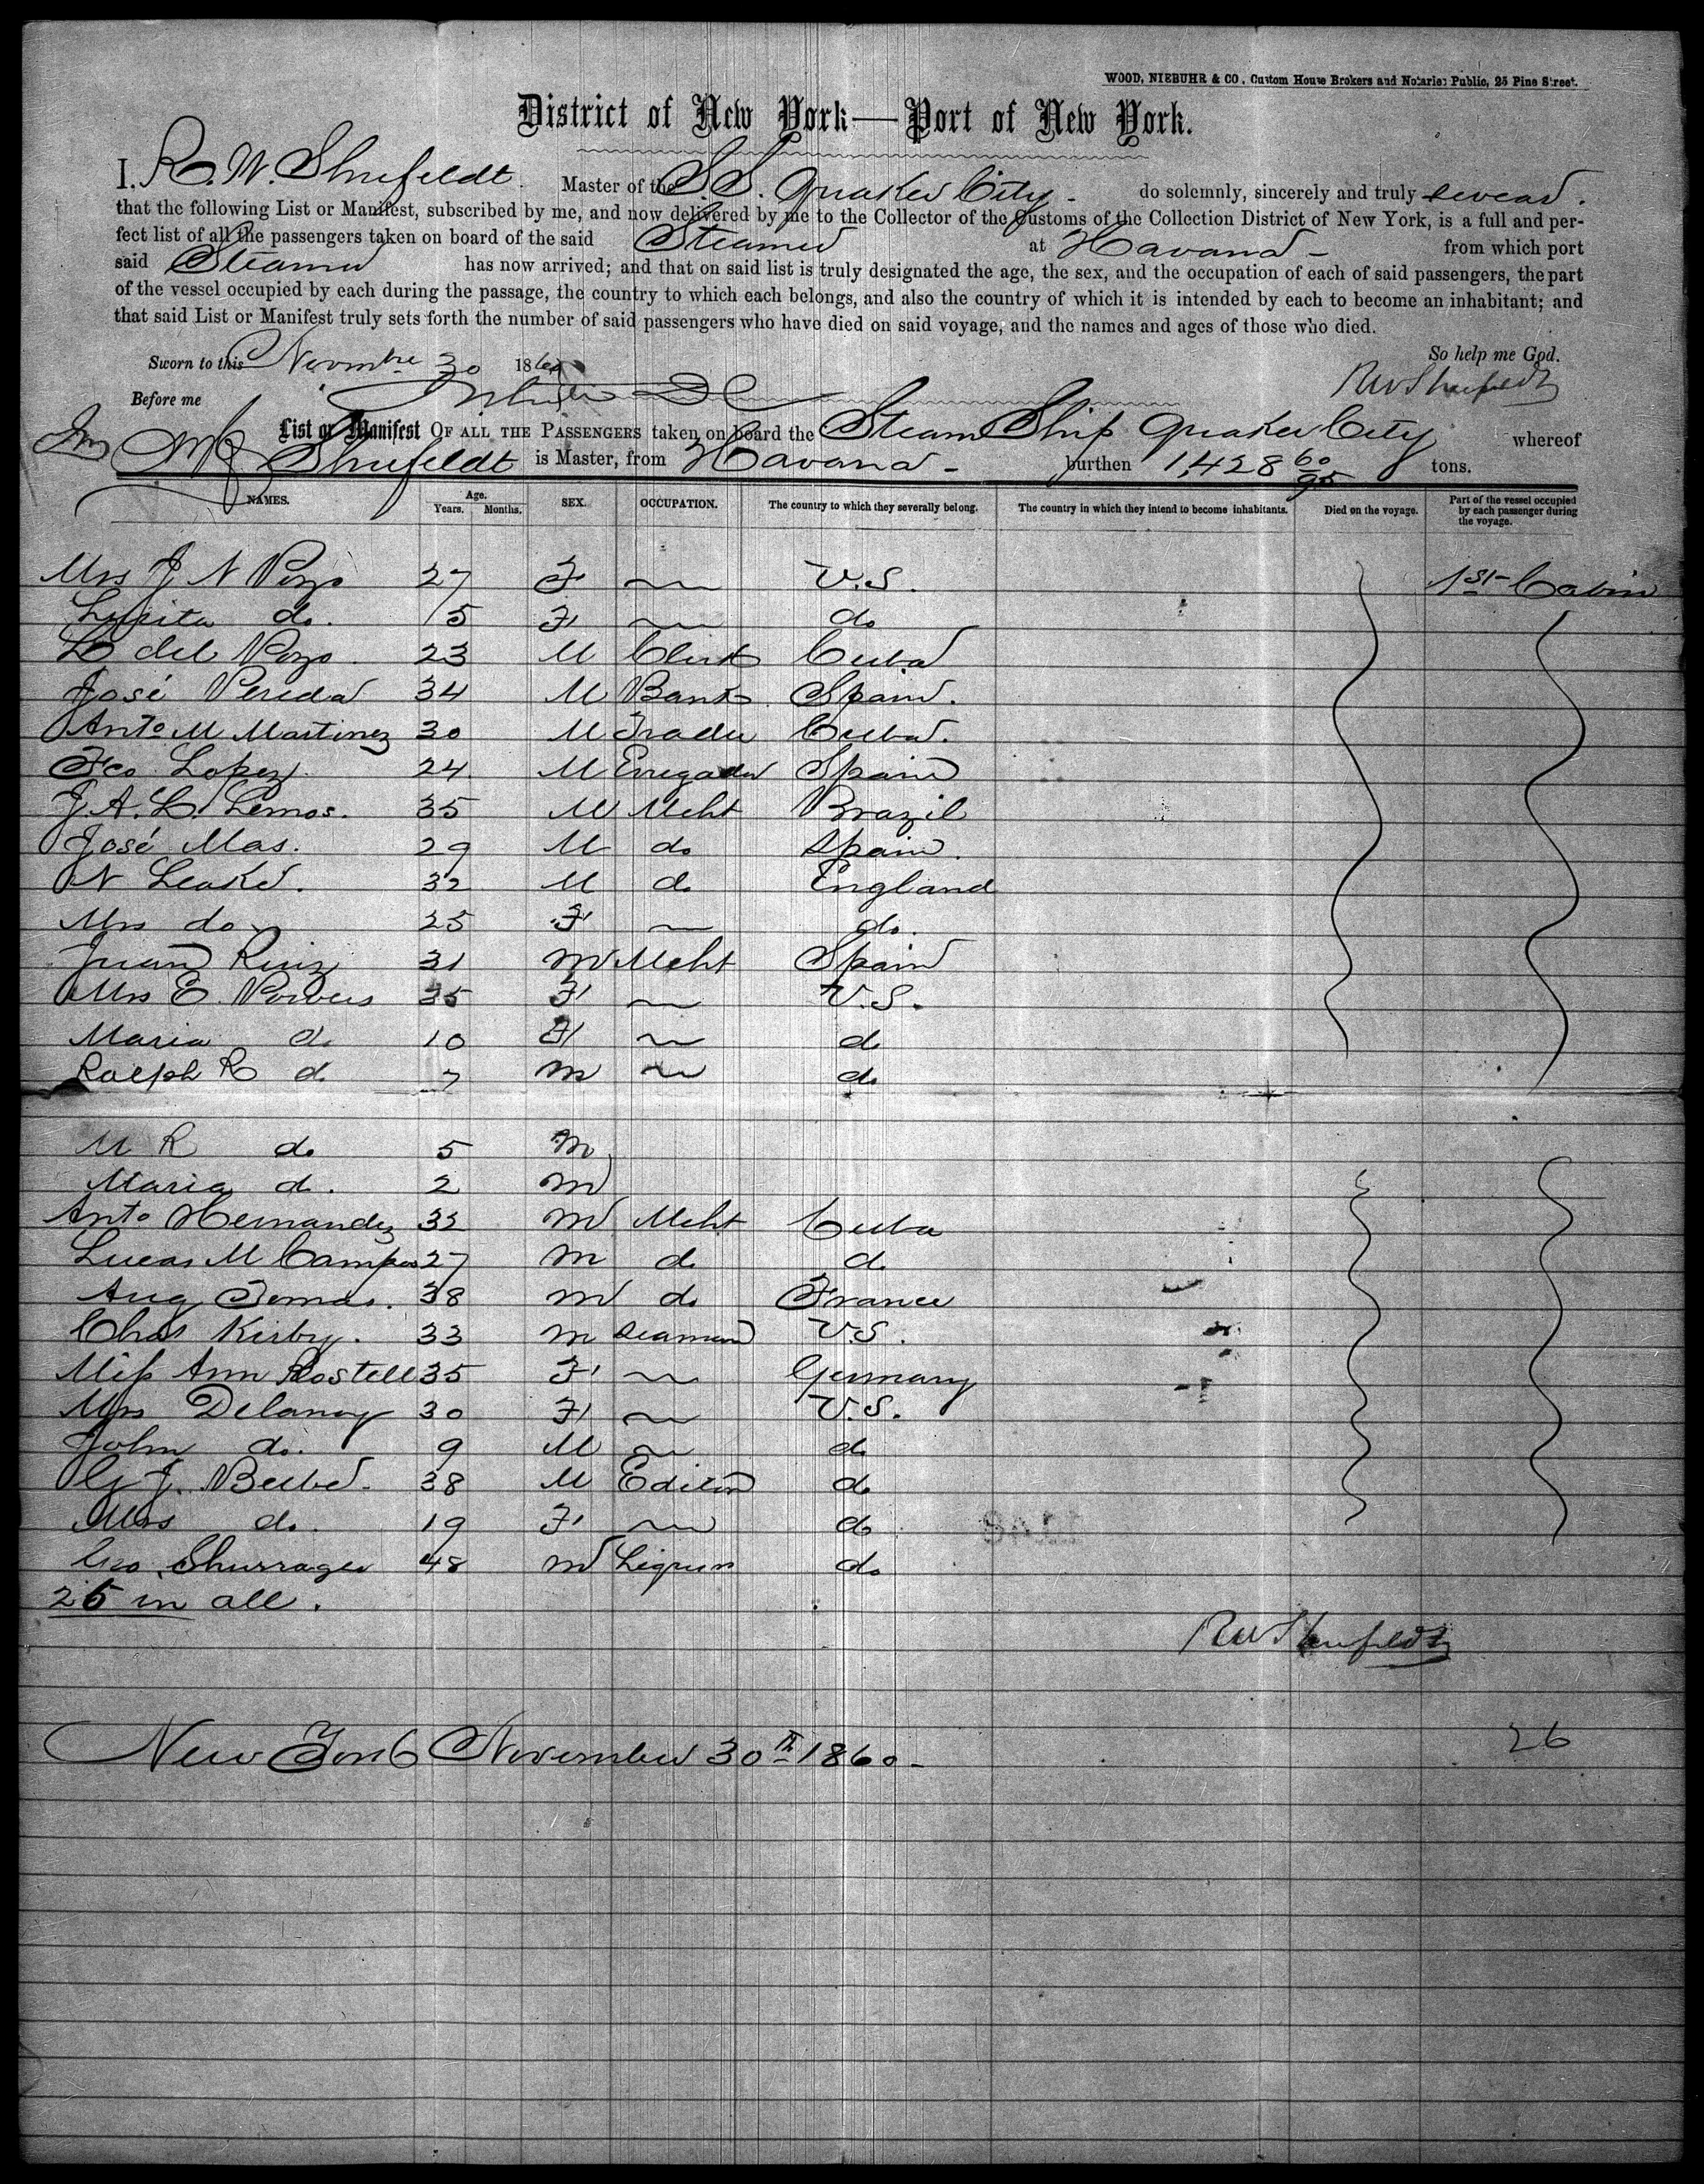 WOOD, NIEBUHR & CO., Custom House Brokers and Notaries Public, 25 Pine Street.
District of New York—Port of New York.
I, R. W. Shufeldt. Master of the S.S. Quaker City - do solemnly, sincerely and truly swear.
that the following List or Manifest, subscribed by me, and now delivered by me to the Collector of the Customs of the Collection District of New York, is a full and per-
fect list of all the passengers taken on board of the said Steamer at Havana - from which port
said Steamer has now arrived; and that on said list is truly designated the age, the sex, and the occupation of each of said passengers, the part
of the vessel occupied by each during the passage, the country to which each belongs, and also the country of which it is intended by each to become an inhabitant; and
that said List or Manifest truly sets forth the number of said passengers who have died on said voyage, and the names and ages of those who died.
So help me God.
Sworn to this Novmbre 30 1860
RW Shufeldt
Before me
List or Manifest OF ALL THE PASSENGERS taken on board the Steam Ship Quaker City whereof
Shufeldt is Master, from Havana - burthen 1,428 60/95 tons.
NAMES. Age. Years. Months. SEX. OCCUPATION. The country to which they severally belong. The country in which they intend to become inhabitants. Died on the voyage. Part of the vessel occupied by each passenger during the voyage.
Mrs J N Pozo 27 F U.S. 1st Cabin
do. 5 F do
del Pozo 23 M Clerk Cuba
José Pereda 34 M Bank Spain.
Anto M Martinez 30 M Trader Cuba.
Fco Lopez 24 M Spain
J. A. L. Lemos. 35 M Mcht Brazil
José Mas. 29 M do Spain.
N Leake. 32 M do England
Mrs do 25 F do.
Juan Ruiz 31 M Mcht Spain
Mrs E. Powers 35 F U.S.
Maria do 10 F do
Ralph R do 7 M do
M R do 5 M
Maria do. 2 M
Anto Hernandez 32 M Mcht Cuba
Lucas M Campos 27 M do do
Aug Tomas. 38 M do France
Chas Kirby. 33 M Seaman U.S.
Miss Ann Rostell 35 F Germany
Mrs Delancy 30 F U.S.
John do. 9 M do
G J. Beebe. 38 M Editor do
Mrs do. 19 F do
Geo 48 M do
26 in all.
RW Shufeldt
New York November 30th 1860 -
26